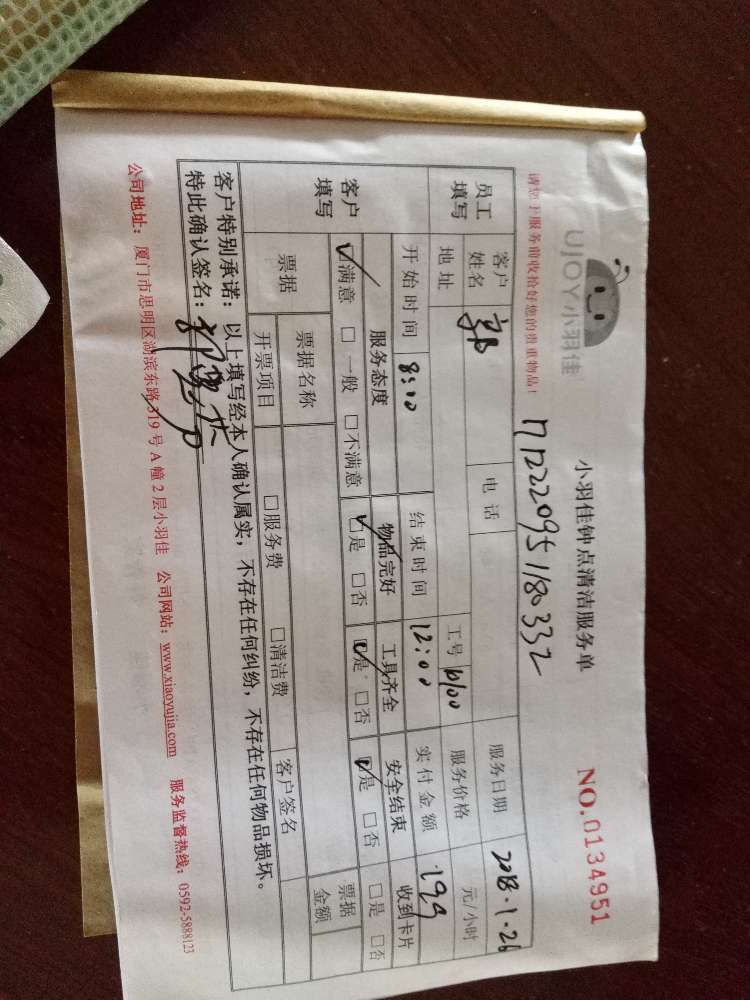 UJOY小羽佳
小羽佳钟点清洁服务单
NO.0134951
请您于服务前收拾好您的贵重物品!
171222095180332
员工填写 客户姓名 电话 服务日期 2018.1.26
地址 工号 服务价格 元/小时
开始时间 8:00 结束时间 12:00 实付金额 199
客户填写 服务态度 物品完好 工具齐全 安全结束 收到卡片
☑满意 □一般 □不满意 ☑是 □否 ☑是 □否 ☑是 □否 □是 □否
票据 票据名称 客户签名 票据金额
开票项目 □服务费 □清洁费
客户特别承诺:以上填写经本人确认属实,不存在任何纠纷,不存在任何物品损坏。
特此确认签名:
公司地址:厦门市思明区湖滨东路319号A幢2层小羽佳 公司网站:www.xiaoyujia.com 服务监督热线:0592-5888123